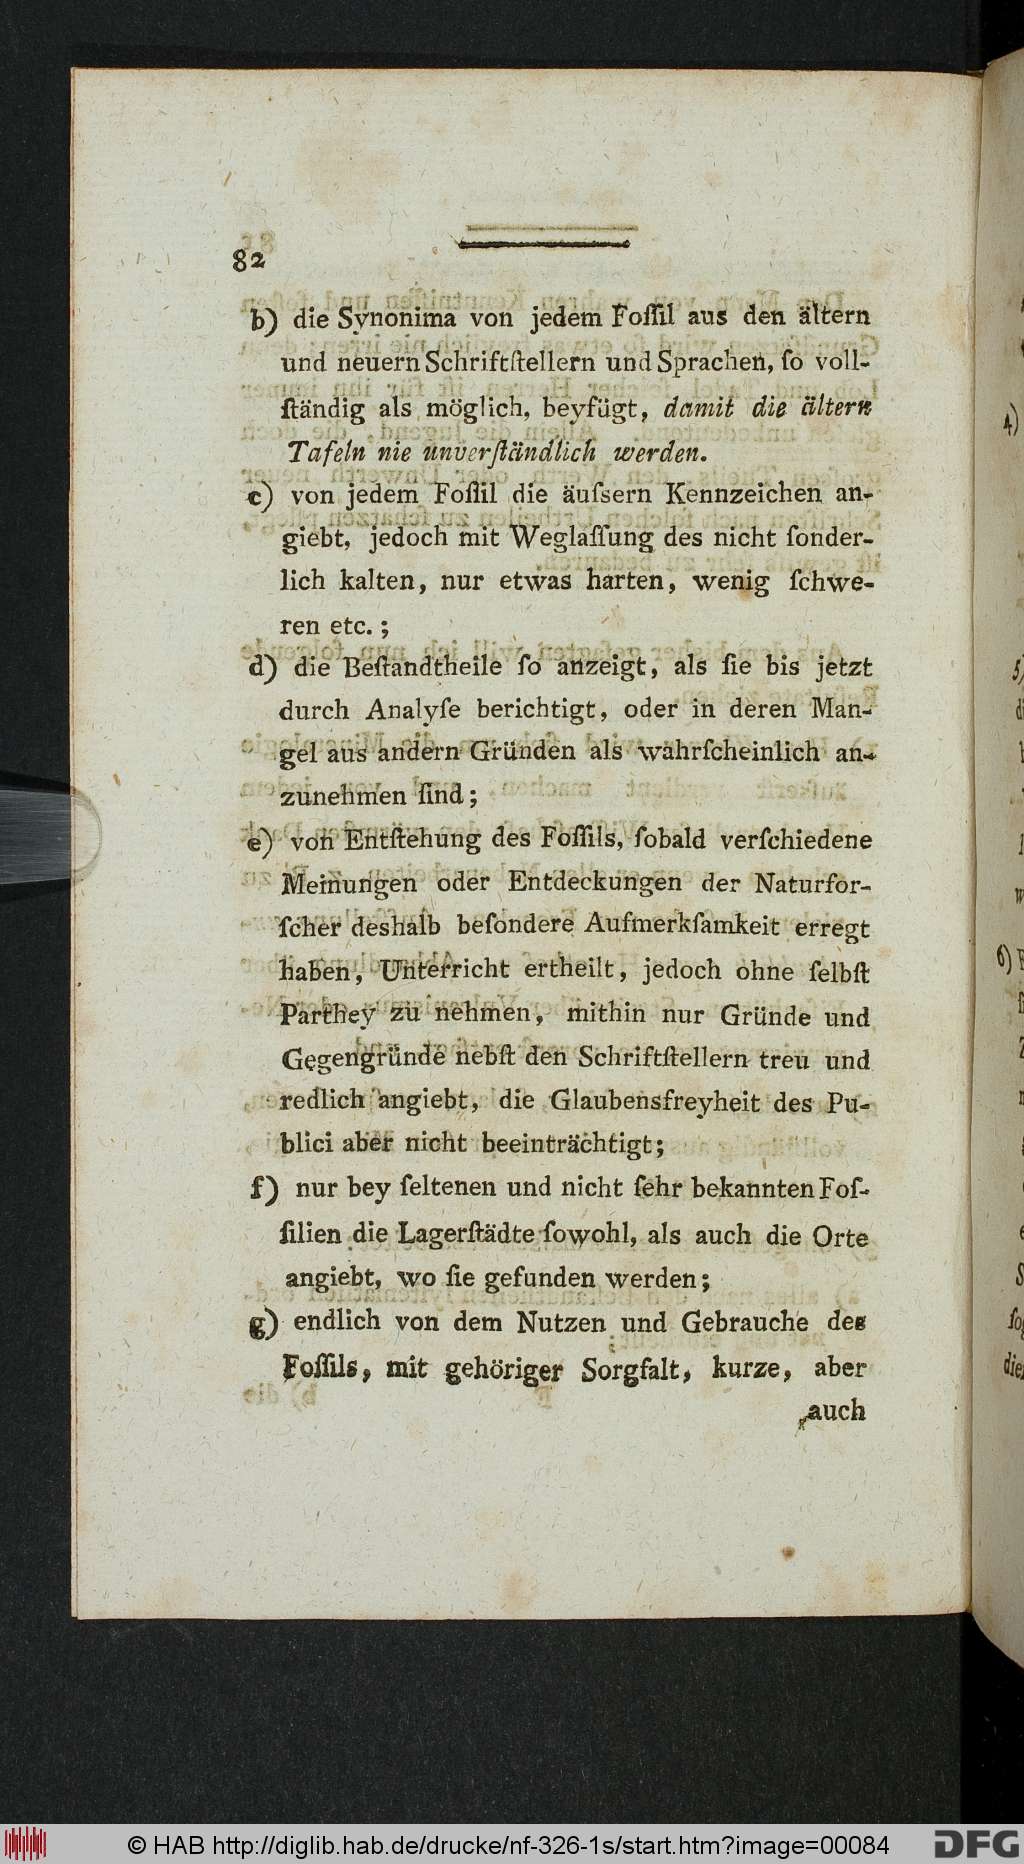 82
b) die Synonima von jedem Foſſil aus den ältern
und neuern Schriftſtellern und Sprachen, ſo voll-
ſtändig als möglich, beyfügt, damit die ältern
Tafeln nie unverſtändlich werden.
c) von jedem Foſſil die äuſsern Kennzeichen an-
giebt, jedoch mit Weglaſſung des nicht ſonder-
lich kalten, nur etwas harten, wenig ſchwe-
ren etc.;
d) die Beſtandtheile ſo anzeigt, als ſie bis jetzt
durch Analyſe berichtigt, oder in deren Man-
gel aus andern Gründen als wahrſcheinlich an-
zunehmen ſind;
e) von Entſtehung des Foſſils, ſobald verſchiedene
Meinungen oder Entdeckungen der Naturfor-
ſcher deshalb beſondere Aufmerkſamkeit erregt
haben, Unterricht ertheilt, jedoch ohne ſelbſt
Parthey zu nehmen, mithin nur Gründe und
Gegengründe nebſt den Schriftſtellern treu und
redlich angiebt, die Glaubensfreyheit des Pu-
blici aber nicht beeinträchtigt;
f) nur bey ſeltenen und nicht ſehr bekannten Foſ-
ſilien die Lagerſtädte ſowohl, als auch die Orte
angiebt, wo ſie gefunden werden;
g) endlich von dem Nutzen und Gebrauche des
Foſſils, mit gehöriger Sorgfalt, kurze, aber
auch
4)
5)
6)
© HAB http://diglib.hab.de/drucke/nf-326-1s/start.htm?image=00084
DFG